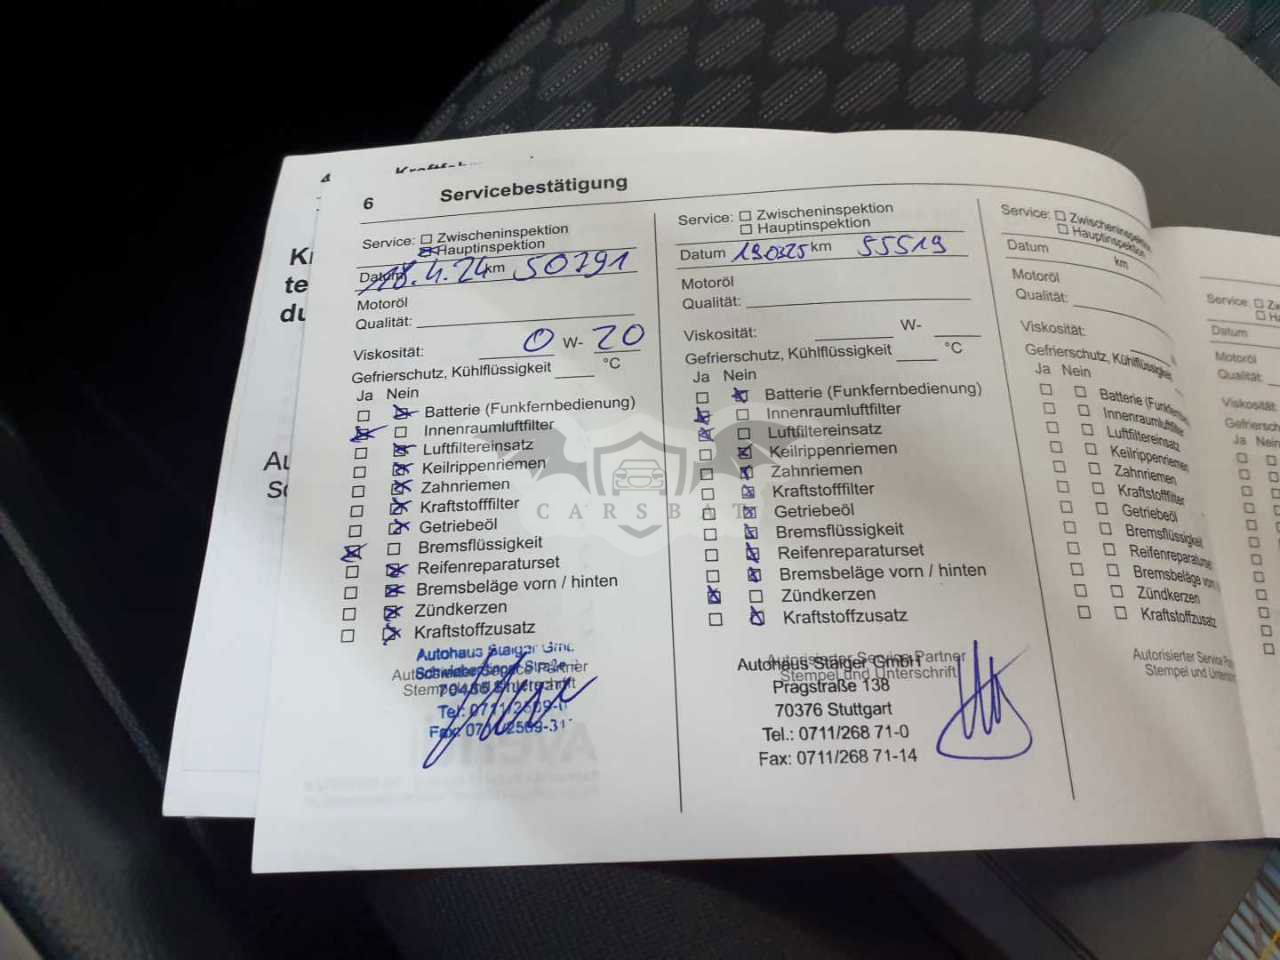 6 Servicebestätigung
Service: Zwischeninspektion
Hauptinspektion
Datum 18.4.24 km 50791
Motoröl
Qualität:
Viskosität: 0 W- 20
Gefrierschutz, Kühlflüssigkeit °C
Ja Nein
Batterie (Funkfernbedienung)
Innenraumluftfilter
Luftfiltereinsatz
Keilrippenriemen
Zahnriemen
Kraftstofffilter
Getriebeöl
Bremsflüssigkeit
Reifenreparaturset
Bremsbeläge vorn / hinten
Zündkerzen
Kraftstoffzusatz
Autohaus Staiger
Tel: 0711/2509-
Service: Zwischeninspektion
Hauptinspektion
Datum 190325 km 55519
Motoröl
Qualität:
Viskosität: W-
Gefrierschutz, Kühlflüssigkeit °C
Ja Nein
Batterie (Funkfernbedienung)
Innenraumluftfilter
Luftfiltereinsatz
Keilrippenriemen
Zahnriemen
Kraftstofffilter
Getriebeöl
Bremsflüssigkeit
Reifenreparaturset
Bremsbeläge vorn / hinten
Zündkerzen
Kraftstoffzusatz
Autorisierter Service Partner
Stempel und Unterschrift
Autohaus Staiger GmbH
Pragstraße 138
70376 Stuttgart
Tel.: 0711/268 71-0
Fax: 0711/268 71-14
Service: Zwischeninspektion
Hauptinspektion
Datum km
Motoröl
Qualität:
Viskosität:
Gefrierschutz, Kühlflüssigkeit
Ja Nein
Batterie
Innenraumluftfilter
Luftfiltereinsatz
Keilrippenriemen
Zahnriemen
Kraftstofffilter
Getriebeöl
Bremsflüssigkeit
Reifenreparaturset
Bremsbeläge
Zündkerzen
Kraftstoffzusatz
Autorisierter Service
Stempel und
Service:
Datum
Motoröl
Qualität:
Viskosität:
Ja Nein
CARSBAT